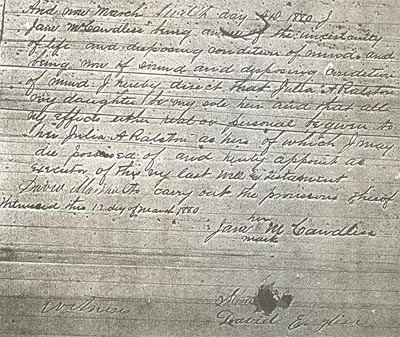 And now March Twelth day A.D. 1880. I
Jane McCandless being aware of the uncertainty
of life and disposing condition of mind and
being now of sound and disposing condition
of mind I hereby direct that Julia A Ralston
my daughter be my sole heir and that all
my effects either real or personal be given to
Mrs Julia A Ralston as heir of which I may
die possessed of and hereby appoint as
executor of this my last will & testament
David to carry out the provisions thereof
Witnessed this 12 day of March 1880
her
Jane M Candless
mark
Witness
David English